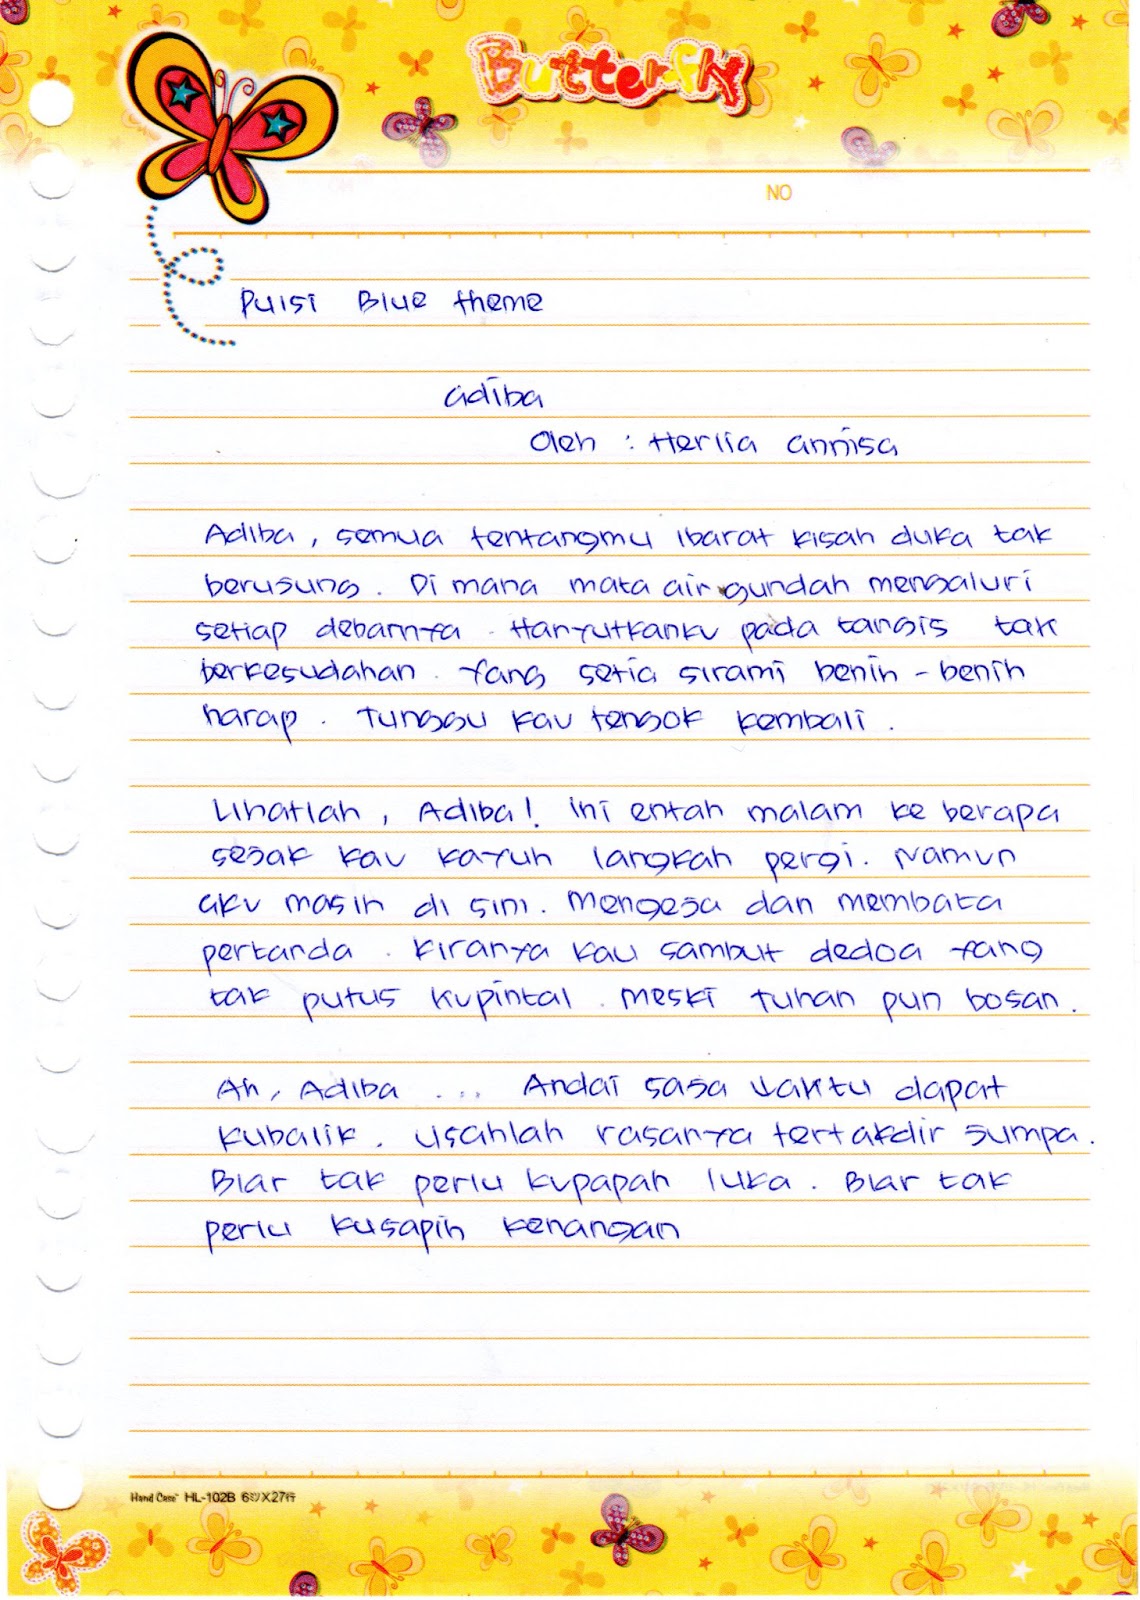 Butterfly
NO
Puisi Blue theme
Adiba
Oleh : Herlia annisa
Adiba, semua tentangmu ibarat kisah duka tak
berusung. Di mana mata air gundah mengaluri
setiap debarnya. Hanyutkanku pada tangis tak
berkesudahan. Yang setia sirami benih - benih
harap. Tunggu kau tengok kembali.
Lihatlah, Adiba! ini entah malam ke berapa
sejak kau kayuh langkah pergi. Namun
aku masih di sini. Mengeja dan membaca
pertanda. Kiranya kau sambut dedoa yang
tak putus kupintal. Meski Tuhan pun bosan.
Ah, Adiba ... Andai saja waktu dapat
kubalik. Usahlah rasanya tertakdir jumpa.
Biar tak perlu kupapah luka. Biar tak
perlu kusapih kenangan
Hand Case HL-102B 6ツX27行